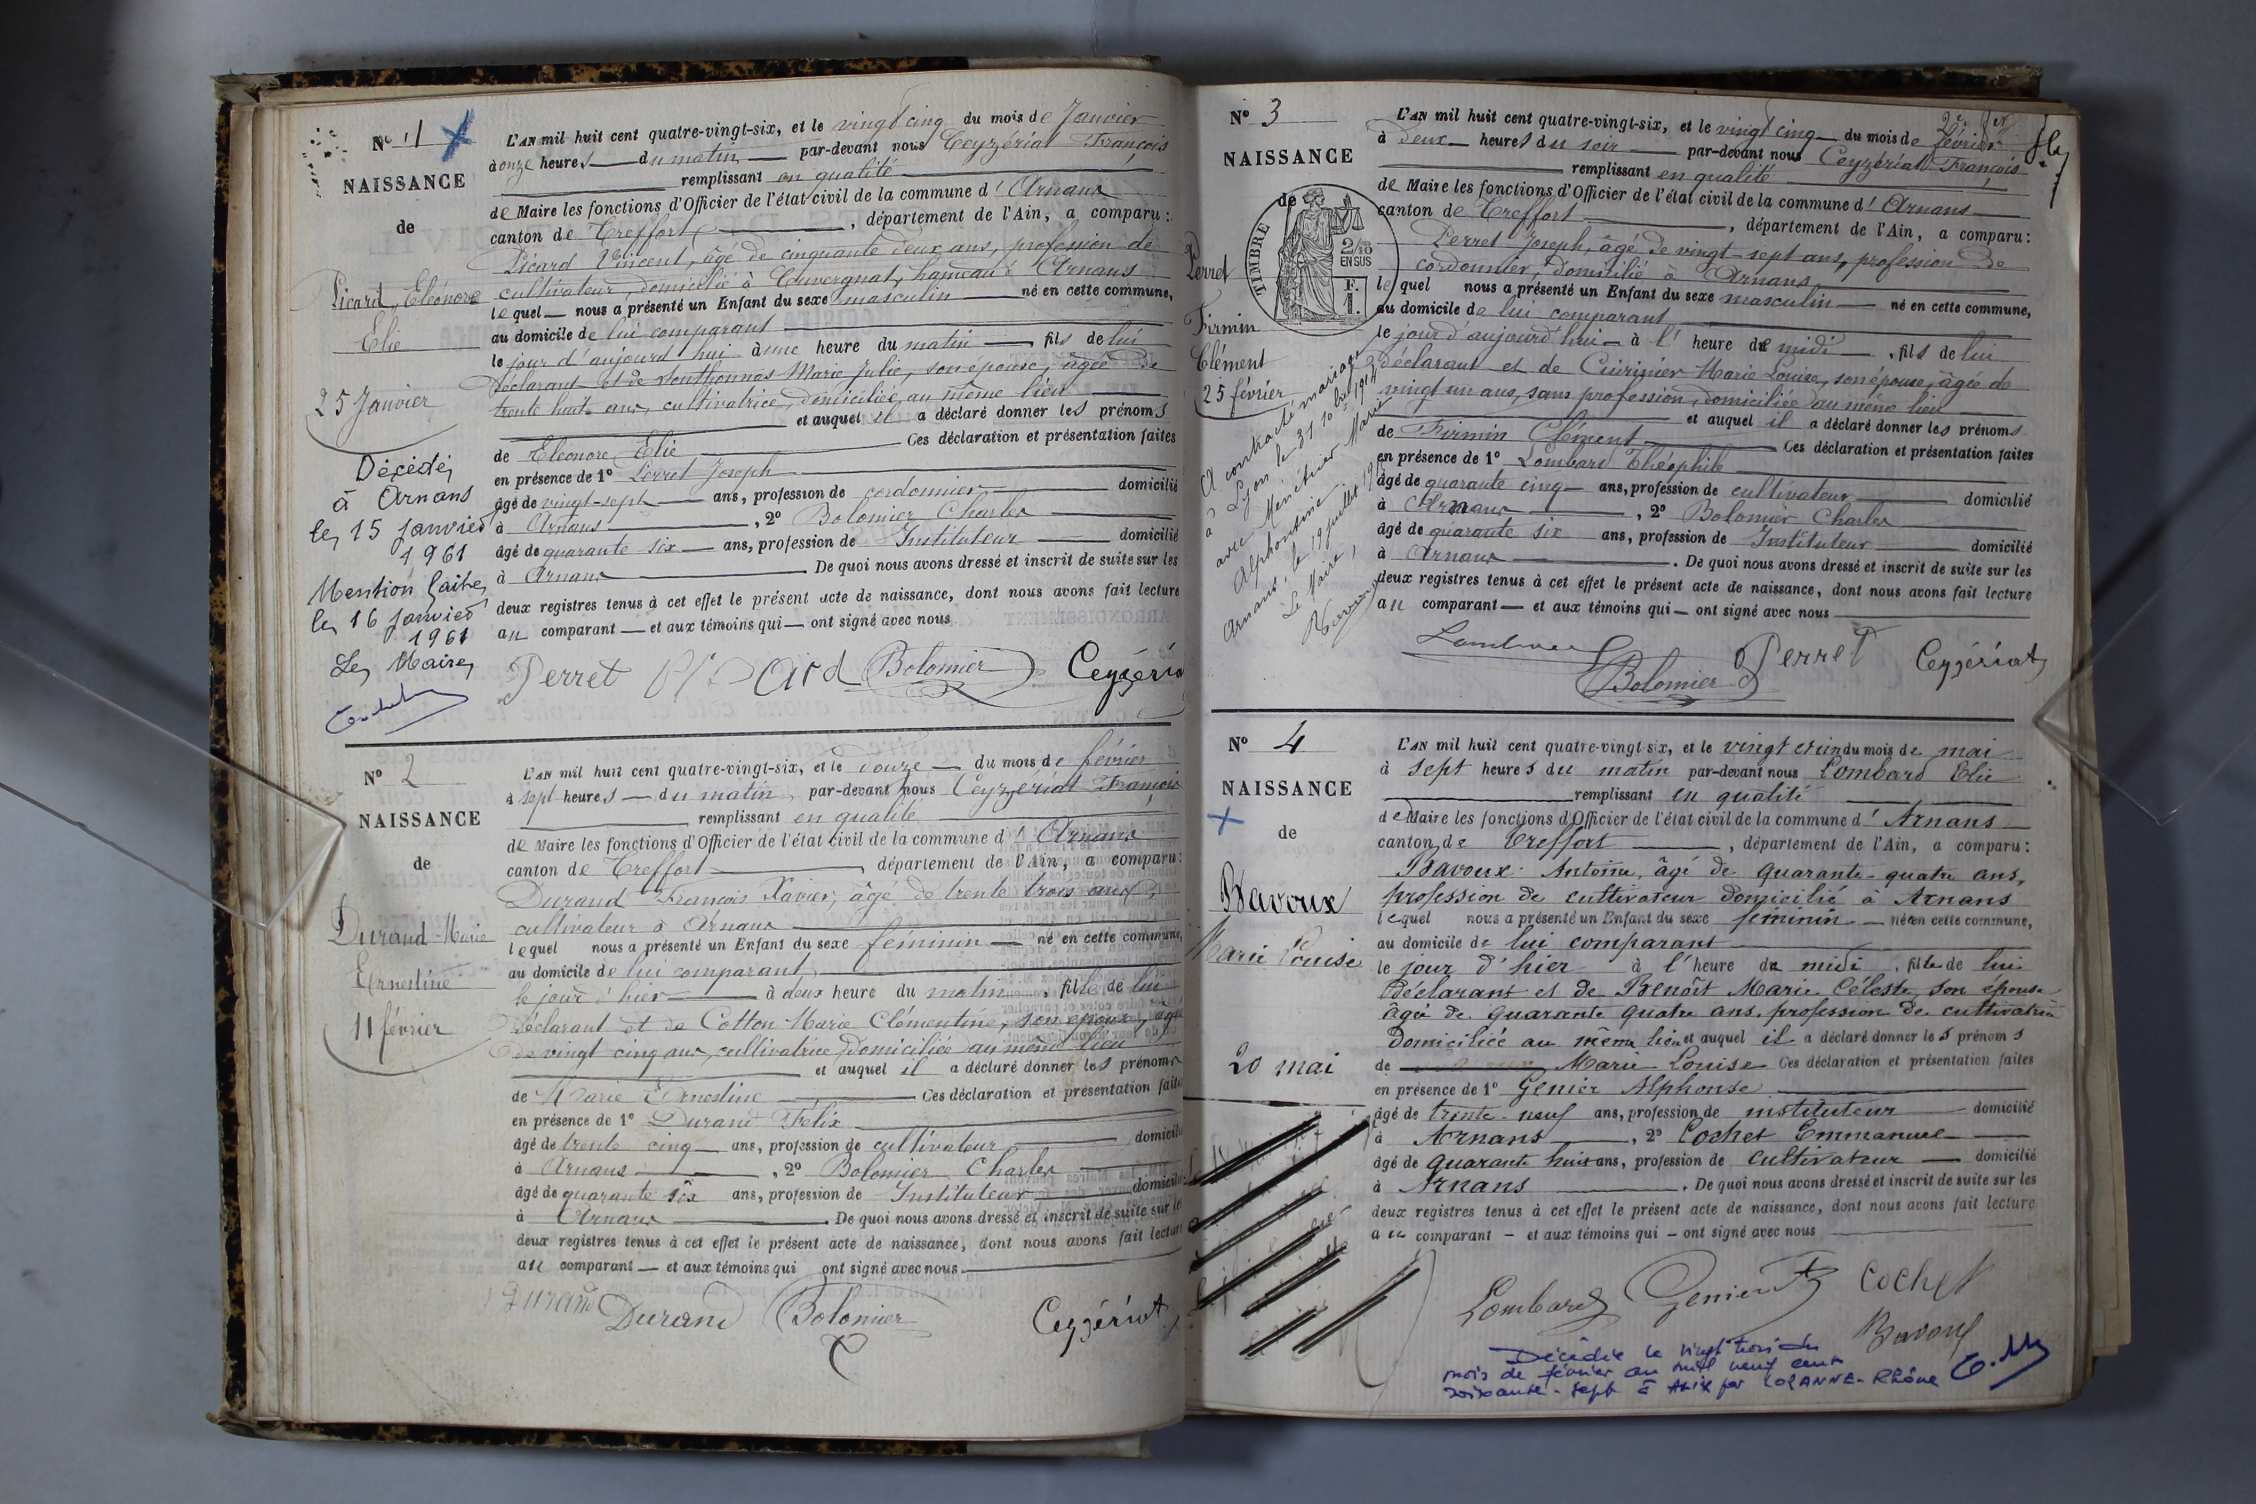 N° 1
NAISSANCE
de
Picard, Eléonore
Elie
25 Janvier
Décédé,
à Arnans
le, 15 janvier
1961
Mention faite,
le, 16 janvier
1961
Le, Maire,
L'AN mil huit cent quatre-vingt-six, et le vingt cinq du mois de Janvier
à onze heures du matin par-devant nous Ceyzériat François
remplissant en qualité
de Maire les fonctions d'Officier de l'état civil de la commune d'Arnans
canton de Treffort, département de l'Ain, a comparu:
Picard Vincent, âgé de cinquante deux ans, profession de
cultivateur, domicilié à Cuvergnat, hameau d'Arnans
lequel nous a présenté un Enfant du sexe masculin né en cette commune,
au domicile de lui comparant
le jour d'aujourd'hui à une heure du matin, fils de lui
déclarant et de Marie Julie, son épouse, âgée de
trente huit ans, cultivatrice, domiciliée au même lieu
et auquel il a déclaré donner les prénoms
de Eléonore Elie Ces déclaration et présentation faites
en présence de 1° Perret Joseph
âgé de vingt-sept ans, profession de cordonnier domicilié
à Arnans, 2° Bolomier Charles
âgé de quarante six ans, profession de Instituteur domicilié
à Arnans De quoi nous avons dressé et inscrit de suite sur les
deux registres tenus à cet effet le présent acte de naissance, dont nous avons fait lecture
au comparant et aux témoins qui ont signé avec nous
Perret Picard Bolomier Ceyzériat
N° 2
NAISSANCE
de
Durand Marie
Ernestine
11 février
L'AN mil huit cent quatre-vingt-six, et le douze du mois de février
à sept heures du matin, par-devant nous Ceyzériat François
remplissant en qualité
de Maire les fonctions d'Officier de l'état civil de la commune d'Arnans
canton de Treffort, département de l'Ain, a comparu:
Durand François Xavier, âgé de trente trois ans,
cultivateur à Arnans
lequel nous a présenté un Enfant du sexe féminin né en cette commune,
au domicile de lui comparant
le jour d'hier à deux heure du matin, fille de lui
déclarant et de Cotton Marie Clémentine, son épouse, âgée
de vingt cinq ans, cultivatrice, domiciliée au même lieu
et auquel il a déclaré donner les prénoms
de Marie Ernestine Ces déclaration et présentation faites
en présence de 1° Durand Félix
âgé de trente cinq ans, profession de cultivateur domicilié
à Arnans, 2° Bolomier Charles
âgé de quarante six ans, profession de Instituteur domicilié
à Arnans. De quoi nous avons dressé et inscrit de suite sur les
deux registres tenus à cet effet le présent acte de naissance, dont nous avons fait lecture
au comparant et aux témoins qui ont signé avec nous
Durand Durand Bolomier Ceyzériat
N° 3
NAISSANCE
de
TIMBRE
2/10
EN SUS
F.
1.
Perret
Firmin
Clément
25 février
A contracté mariage
à Lyon le 31 10bre 1914
avec Menétrier Marie
Alphonsine
Arnans, le 19 juillet
Le Maire,
L'AN mil huit cent quatre-vingt-six, et le vingt cinq du mois de février
à deux heures du soir par-devant nous Ceyzériat François
remplissant en qualité
de Maire les fonctions d'Officier de l'état civil de la commune d'Arnans
canton de Treffort, département de l'Ain, a comparu:
Perret Joseph, âgé de vingt-sept ans, profession de
cordonnier, domicilié à Arnans
lequel nous a présenté un Enfant du sexe masculin né en cette commune,
au domicile de lui comparant
le jour d'aujourd'hui à l'heure de midi, fils de lui
déclarant et de Marie Louise, son épouse, âgée de
vingt un ans, sans profession, domiciliée au même lieu
et auquel il a déclaré donner les prénoms
de Firmin Clément Ces déclaration et présentation faites
en présence de 1° Lombard Théophile
âgé de quarante cinq ans, profession de cultivateur domicilié
à Arnans, 2° Bolomier Charles
âgé de quarante six ans, profession de Instituteur domicilié
à Arnans. De quoi nous avons dressé et inscrit de suite sur les
deux registres tenus à cet effet le présent acte de naissance, dont nous avons fait lecture
au comparant et aux témoins qui ont signé avec nous
Lombard Bolomier Perret Ceyzériat
N° 4
NAISSANCE
de
Bavoux
Marie Louise
20 mai
L'AN mil huit cent quatre-vingt-six, et le vingt et un du mois de mai
à sept heures du matin par-devant nous Lombard Elie
remplissant en qualité
de Maire les fonctions d'Officier de l'état civil de la commune d'Arnans
canton de Treffort, département de l'Ain, a comparu:
Bavoux Antoine, âgé de quarante-quatre ans,
profession de cultivateur domicilié à Arnans
lequel nous a présenté un Enfant du sexe féminin née en cette commune,
au domicile de lui comparant
le jour d'hier à l'heure de midi, fille de lui
déclarant et de Benoît Marie Céleste, son épouse
âgée de quarante quatre ans, profession de cultivatrice
domiciliée au même lieu et auquel il a déclaré donner les prénoms
de Marie Louise Ces déclaration et présentation faites
en présence de 1° Genier Alphonse
âgé de trente-neuf ans, profession de instituteur domicilié
à Arnans, 2° Cochet Emmanuel
âgé de quarante huit ans, profession de cultivateur domicilié
à Arnans. De quoi nous avons dressé et inscrit de suite sur les
deux registres tenus à cet effet le présent acte de naissance, dont nous avons fait lecture
au comparant et aux témoins qui ont signé avec nous
Lombard Genier Cochet
Bavoux
Décédée le vingt trois du
mois de février an mil neuf cent
soixante-sept à Alix par LOZANNE-Rhône